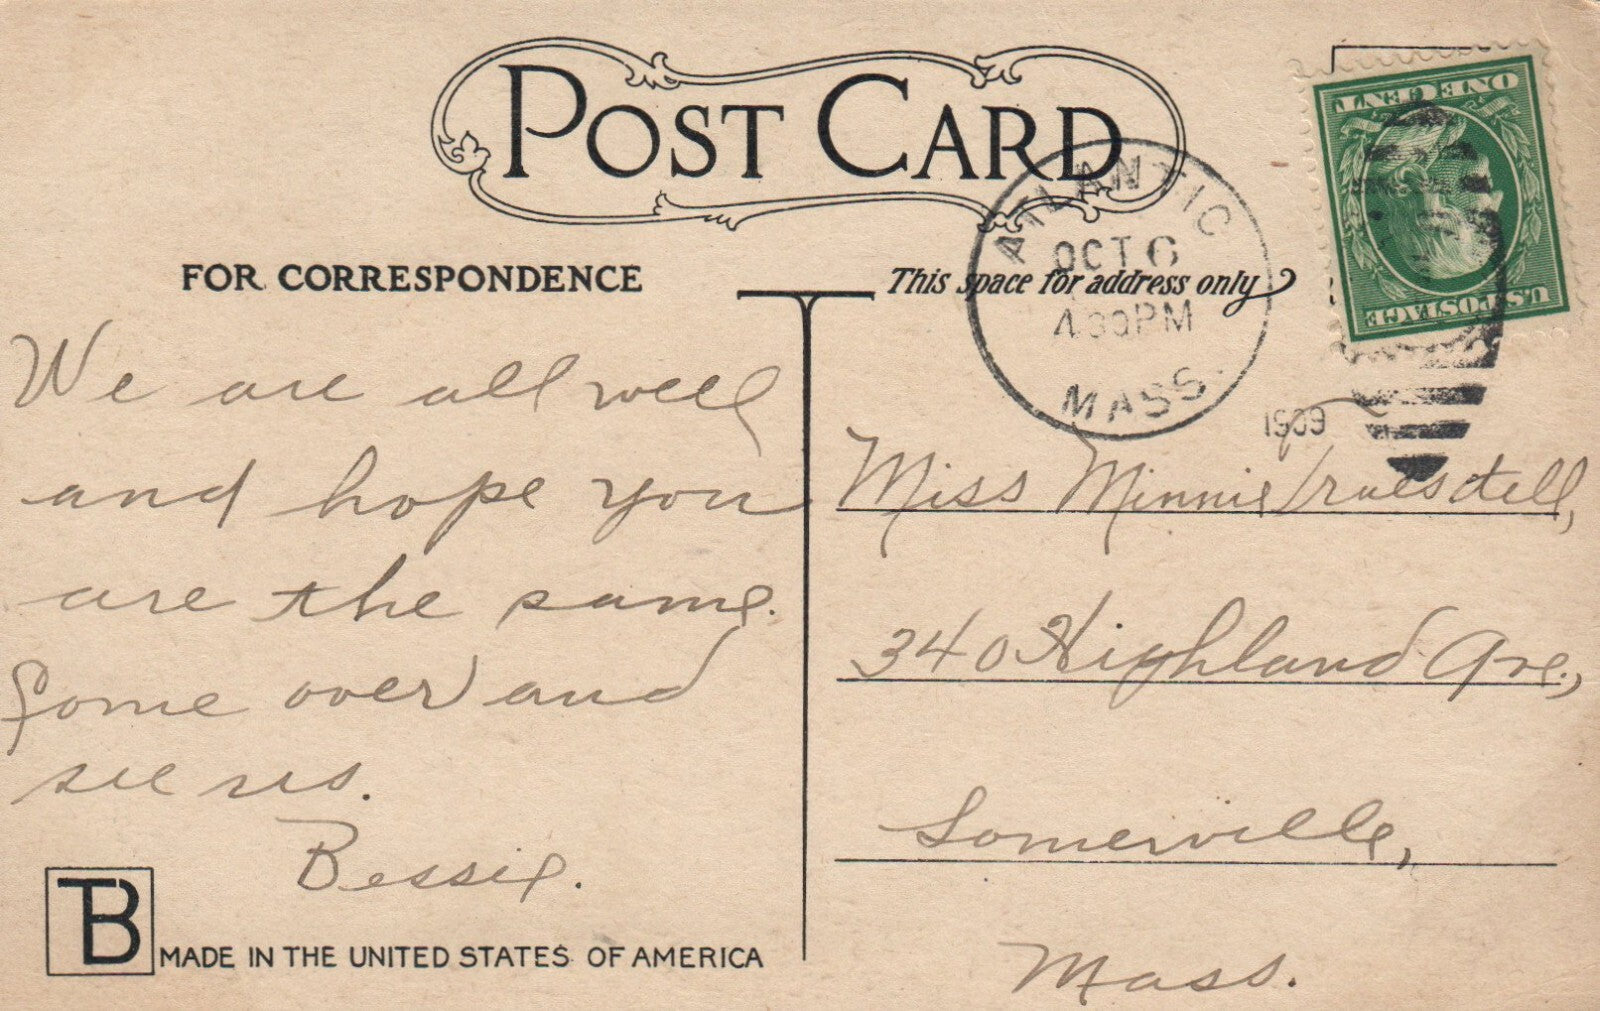 POST CARD
ATLANTIC
OCT 6
4 30 PM
MASS.
1909
ONE CENT
U.S. POSTAGE
FOR CORRESPONDENCE
This space for address only
We are all well
and hope you
are the same.
Come over and
see us.
Bessie.
Miss Minnie Truesdell,
340 Highland Ave.,
Somerville,
Mass.
TB
MADE IN THE UNITED STATES OF AMERICA